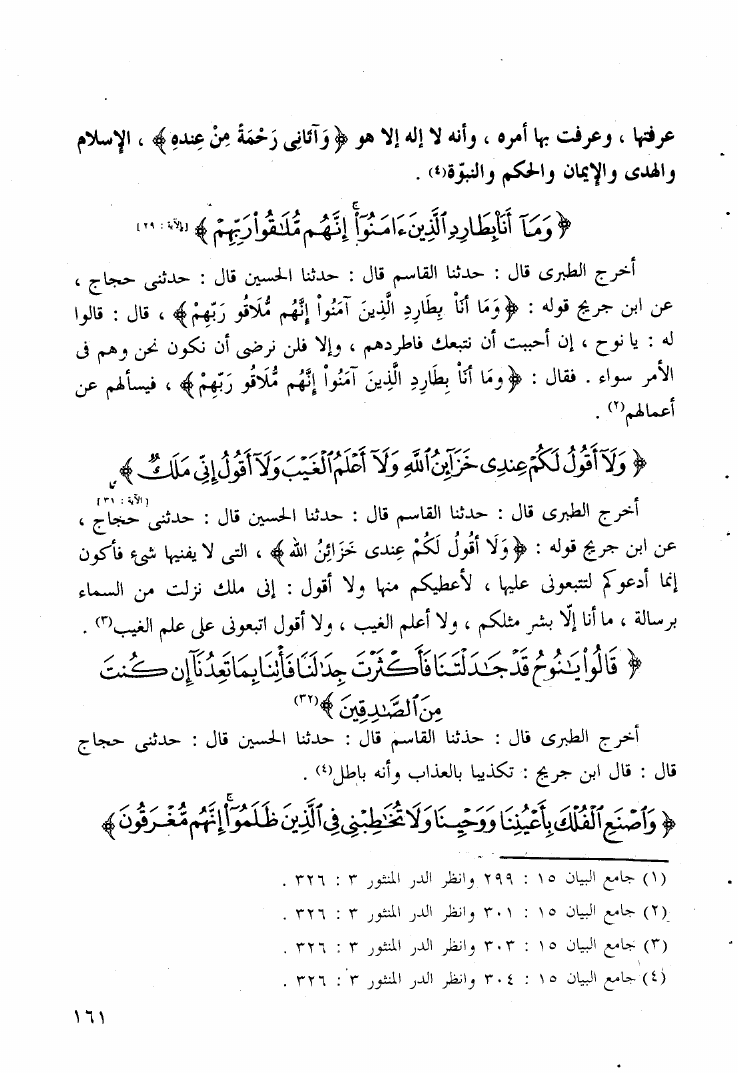 عرفتها ، وعرفت بها أمره ، وأنه لا إله إلا هو ﴿ وَآتَانِى رَحْمَةً مِنْ عِندِهِ ﴾ ، الإسلام
والهدى والإيمان والحكم والنبوّة(٤) .
﴿ وَمَآ أَنَا۠ بِطَارِدِ ٱلَّذِينَ ءَامَنُوٓا۟ۚ إِنَّهُم مُّلَٰقُوا۟ رَبِّهِمْ ﴾ [الآية : ٢٩]
أخرج الطبرى قال : حدثنا القاسم قال : حدثنا الحسين قال : حدثنى حجاج ،
عن ابن جريج قوله : ﴿ وَمَا أَنَاْ بِطَارِدِ الَّذِينَ آمَنُواْ إِنَّهُم مُّلَاقُو رَبِّهِمْ ﴾ ، قال : قالوا
له : يا نوح ، إن أحببت أن نتبعك فاطردهم ، وإلا فلن نرضى أن نكون نحن وهم فى
الأمر سواء . فقال : ﴿ وَمَا أَنَاْ بِطَارِدِ الَّذِينَ آمَنُواْ إِنَّهُم مُّلَاقُو رَبِّهِمْ ﴾ ، فيسألهم عن
أعمالهم(٢) .
﴿ وَلَآ أَقُولُ لَكُمْ عِندِى خَزَآئِنُ ٱللَّهِ وَلَآ أَعْلَمُ ٱلْغَيْبَ وَلَآ أَقُولُ إِنِّى مَلَكٌ ﴾
[الآية : ٣١]
أخرج الطبرى قال : حدثنا القاسم قال : حدثنا الحسين قال : حدثنى حجاج ،
عن ابن جريج قوله : ﴿ وَلَا أَقُولُ لَكُمْ عِندِى خَزَائِنُ الله ﴾ ، التى لا يفنيها شىء فأكون
إنما أدعوكم لتتبعونى عليها ، لأعطيكم منها ولا أقول : إنى ملك نزلت من السماء
برسالة ، ما أنا إلّا بشر مثلكم ، ولا أعلم الغيب ، ولا أقول اتبعونى على علم الغيب(٣) .
﴿ قَالُوا۟ يَٰنُوحُ قَدْ جَٰدَلْتَنَا فَأَكْثَرْتَ جِدَٰلَنَا فَأْتِنَا بِمَا تَعِدُنَآ إِن كُنتَ
مِنَ ٱلصَّٰدِقِينَ ﴾(٣٢)
أخرج الطبرى قال : حدثنا القاسم قال : حدثنا الحسين قال : حدثنى حجاج
قال : قال ابن جريج : تكذيبا بالعذاب وأنه باطل(٤) .
﴿ وَٱصْنَعِ ٱلْفُلْكَ بِأَعْيُنِنَا وَوَحْيِنَا وَلَا تُخَٰطِبْنِى فِى ٱلَّذِينَ ظَلَمُوٓا۟ۚ إِنَّهُم مُّغْرَقُونَ ﴾
(١) جامع البيان ١٥ : ٢٩٩ وانظر الدر المنثور ٣ : ٣٢٦ .
(٢) جامع البيان ١٥ : ٣٠١ وانظر الدر المنثور ٣ : ٣٢٦ .
(٣) جامع البيان ١٥ : ٣٠٣ وانظر الدر المنثور ٣ : ٣٢٦ .
(٤) جامع البيان ١٥ : ٣٠٤ وانظر الدر المنثور ٣ : ٣٢٦ .
١٦١